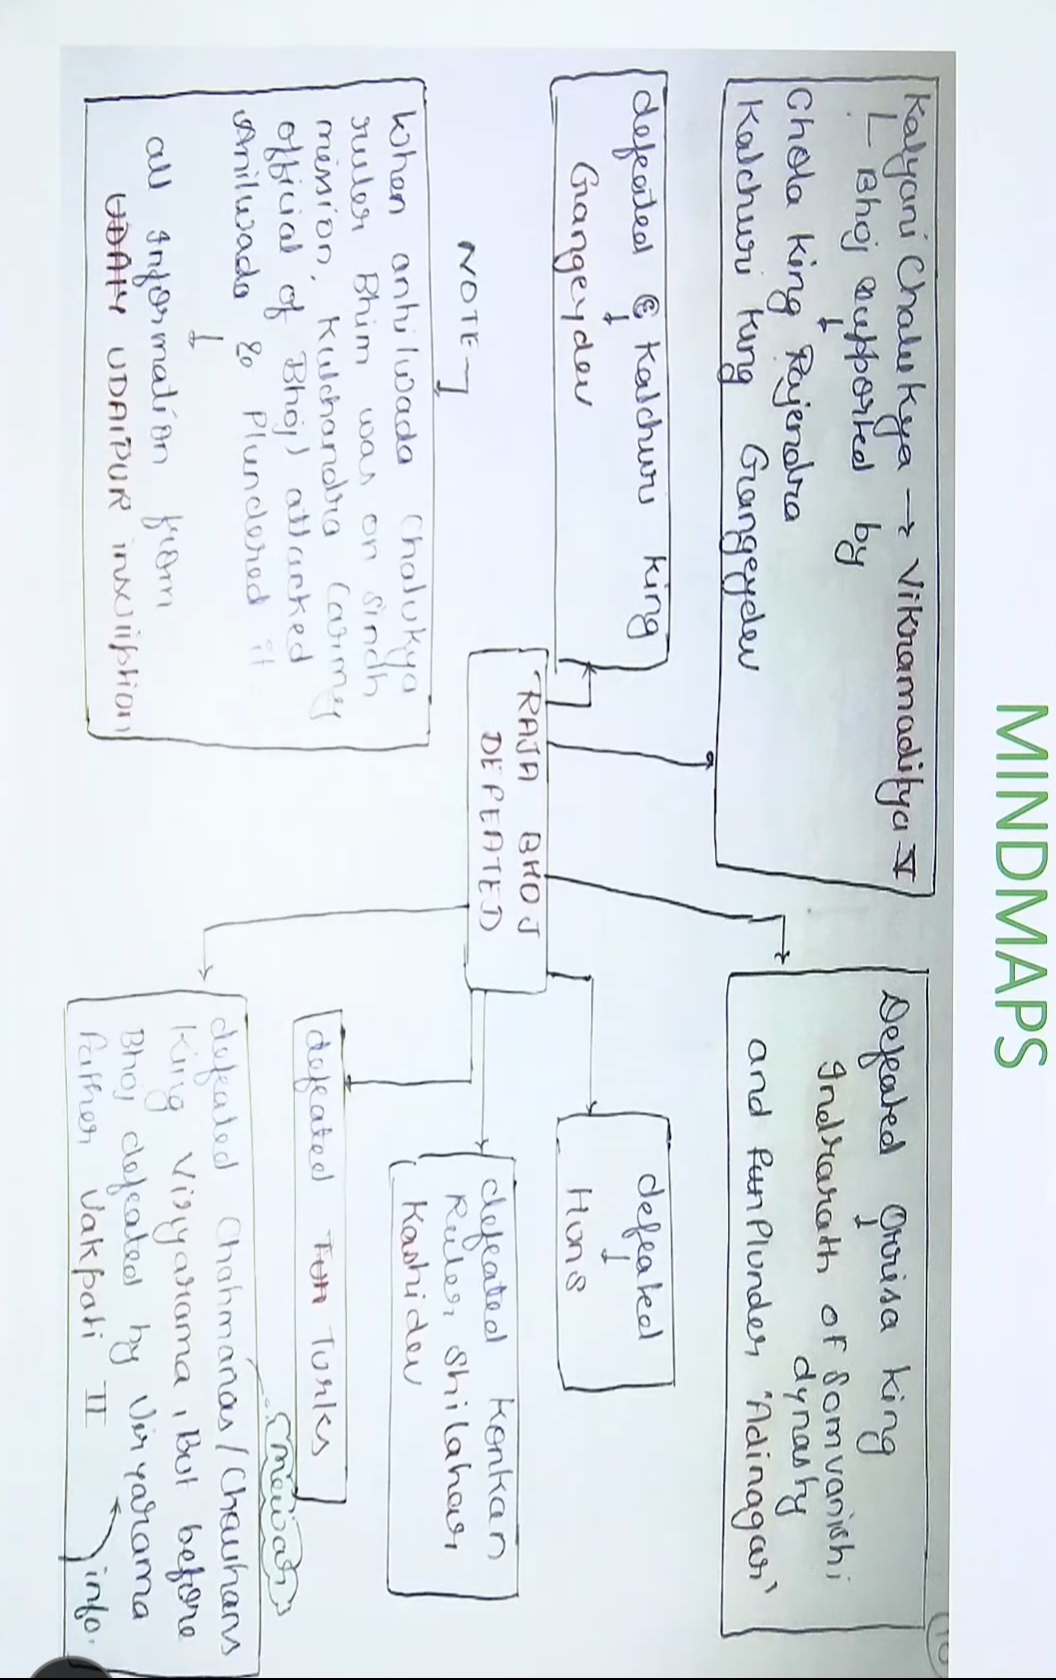 MINDMAPS
10
Kalyani Chalukya → Vikramaditya V
Bhoj supported by
↓
Chola king Rajendra
Kalchuri King Gangeydev
Defeated Orrisa king
↓
Indrarath of Somvanishi
dynasty
and Pun Plunder 'Adinagar'
defeated Kalchuri king
↓
Gangeydev
defeated
↓
Huns
RAJA BHOJ
DEFEATED
defeated Konkan
Ruler Shilahar
Kashidev
NOTE
When anhilwada Chalukya
ruler Bhim was on Sindh
mission, Kulchandra (army
official of Bhoj) attacked
Anilwada & Plundered it
↓
all Information from
UDAIY UDAIPUR inscription
defeated Tun Turks
mewar
defeated Chahmanas/Chauhans
king Viryarama, But before
Bhoj defeated by Viryarama
father Vakpati II
info.